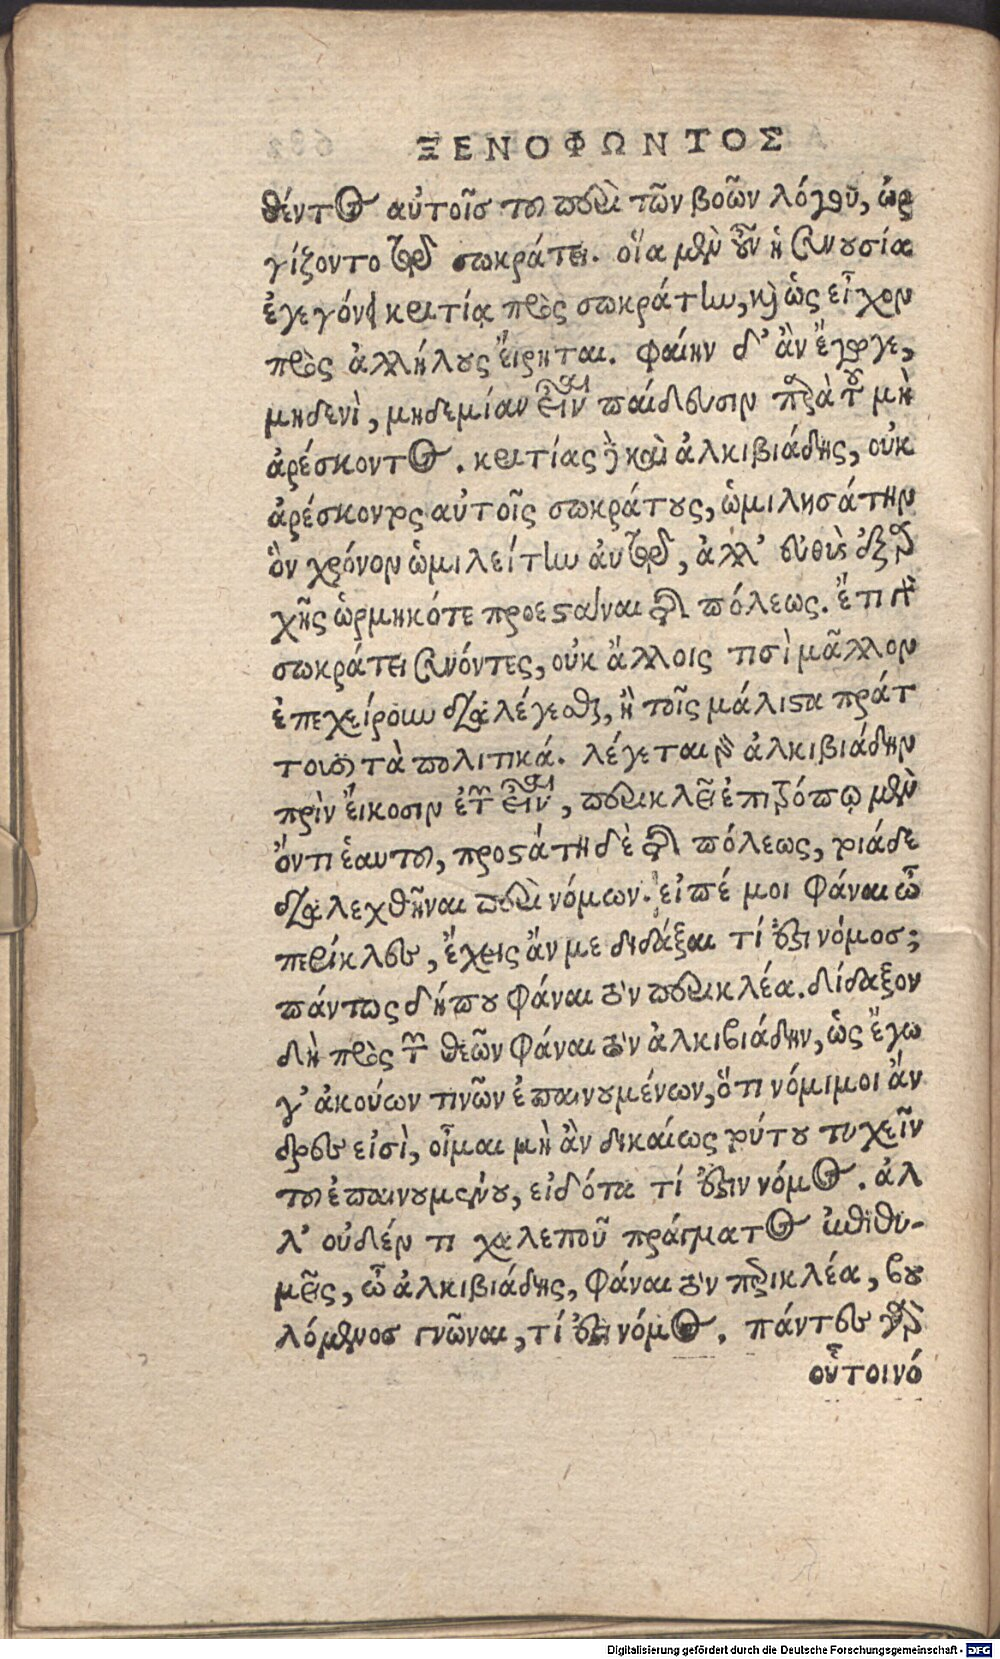 ΞΕΝΟΦΩΝΤΟΣ
θέντος αὐτοῖσ τοῦ περὶ τῶν βοῶν λόγου, ὠρ
γίζοντο τῷ σωκράτει. οἵα μὲν οὖν ἡ συνουσία
ἐγεγόνει κριτίᾳ πρὸς σωκράτην, καὶ ὡς εἶχον
πρὸς ἀλλήλους εἴρηται. φαίην δ' ἂν ἔγωγε,
μηδενὶ, μηδεμίαν εἶναι παίδευσιν παρὰ τοῦ μὴ
ἀρέσκοντος. κριτίας δὲ καὶ ἀλκιβιάδης, οὐκ
ἀρέσκοντος αὐτοῖς σωκράτους, ὡμιλησάτην
ὃν χρόνον ὡμιλείτην αὐτῷ, ἀλλ' εὐθὺς ἐξ ἀρ
χῆς ὡρμηκότε προεστάναι τῆς πόλεως. ἔτι γὰρ
σωκράτει συνόντες, οὐκ ἄλλοις τισὶ μᾶλλον
ἐπεχείρουν διαλέγεσθαι, ἢ τοῖς μάλιστα πράτ
τουσι τὰ πολιτικά. λέγεται γὰρ ἀλκιβιάδην
πρὶν εἴκοσιν ἐτῶν εἶναι, περικλεῖ ἐπιτρόπῳ μὲν
ὄντι ἑαυτοῦ, προστάτῃ δὲ τῆς πόλεως, τοιάδε
διαλεχθῆναι περὶ νόμων. εἰπέ μοι φάναι ὦ
περίκλεις, ἔχεις ἄν με διδάξαι τί ἐστι νόμοσ;
πάντως δήπου φάναι τὸν περικλέα. δίδαξον
δὴ πρὸς τῶν θεῶν φάναι τὸν ἀλκιβιάδην, ὡς ἔγω
γ' ἀκούων τινῶν ἐπαινουμένων, ὅτι νόμιμοι ἄν
δρες εἰσὶ, οἶμαι μὴ ἂν δικαίως τούτου τυχεῖν
τοῦ ἐπαινουμένου, εἰδότα τί ἐστιν νόμος. ἀλ
λ' οὐδέν τι χαλεποῦ πράγματος ἐπιθυ-
μεῖς, ὦ ἀλκιβιάδης, φάναι τὸν περικλέα, βου
λόμενοσ γνῶναι, τί ἐστι νόμος. πάντες γὰρ
οὗτοι νό
Digitalisierung gefördert durch die Deutsche Forschungsgemeinschaft - DFG